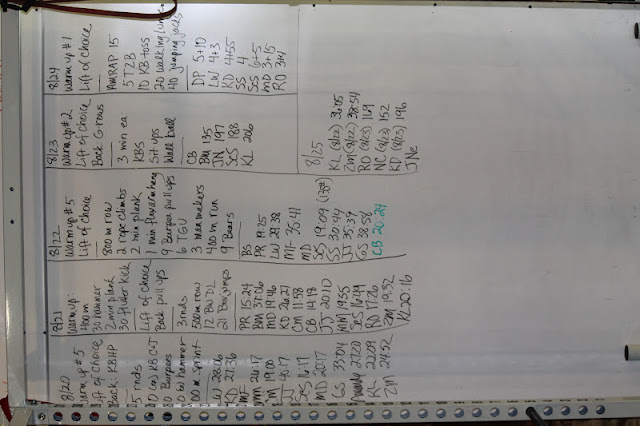 8/20
Warm up #5
Lift of Choice
Back: KBHP
5 rnds
Burpees
100 m sprint
KD 27:36
MF
26:17
SM 19:00
JJ
SCS 16:17
MD 20:17
GS 33:04
27:20
KL 22:09
ZM 24:32
8/21
Warm up:
400 m
30 runner
2 min plank
30 flutter kick
Lift of Choice
Back pull ups
3 rnds
500 m row
12 BW DL
21 Box jumps
PR 15:24
BM 37:06
MD 19:46
KD 26:21
CM 11:58
CB 13:18
JJ 20:10
MM 19:55
SCS 16:49
RD 17:26
ZM 19:32
KL 20:16
8/22
Warm up #5
Lift of Choice
800 m row
2 rope climbs
2 min plank
1 min flexed arm hang
9 Burpee pull ups
6 TGU
3 man makers
400 m run
9 Bears
BS
PR 19:25
LW 29:38
MF 36:41
MD
SCS 19:09
SS 30:44
JJ 35:39
GS 38:58
CB 20:24
8/23
Warm up #2
Lift of Choice
Back G-rows
3 min ea
KBS
Sit ups
Wall ball
CB
BM 135
JN 197
SCS 188
KL 206
8/24
Warm up #1
Lift of Choice
AMRAP 15
5 T2B
10 KB toss
20 walking lunges
40 jumping jacks
DP 5+10
LW 4+3
KD 4+55
SS 4
SCS 6+5
MD 3+15
RD 3+1
8/25
KL (8/22) 31:05
ZM (8/22) 38:54
RD (8/23) 169
NC (8/23) 152
KD (8/23) 196
JNe